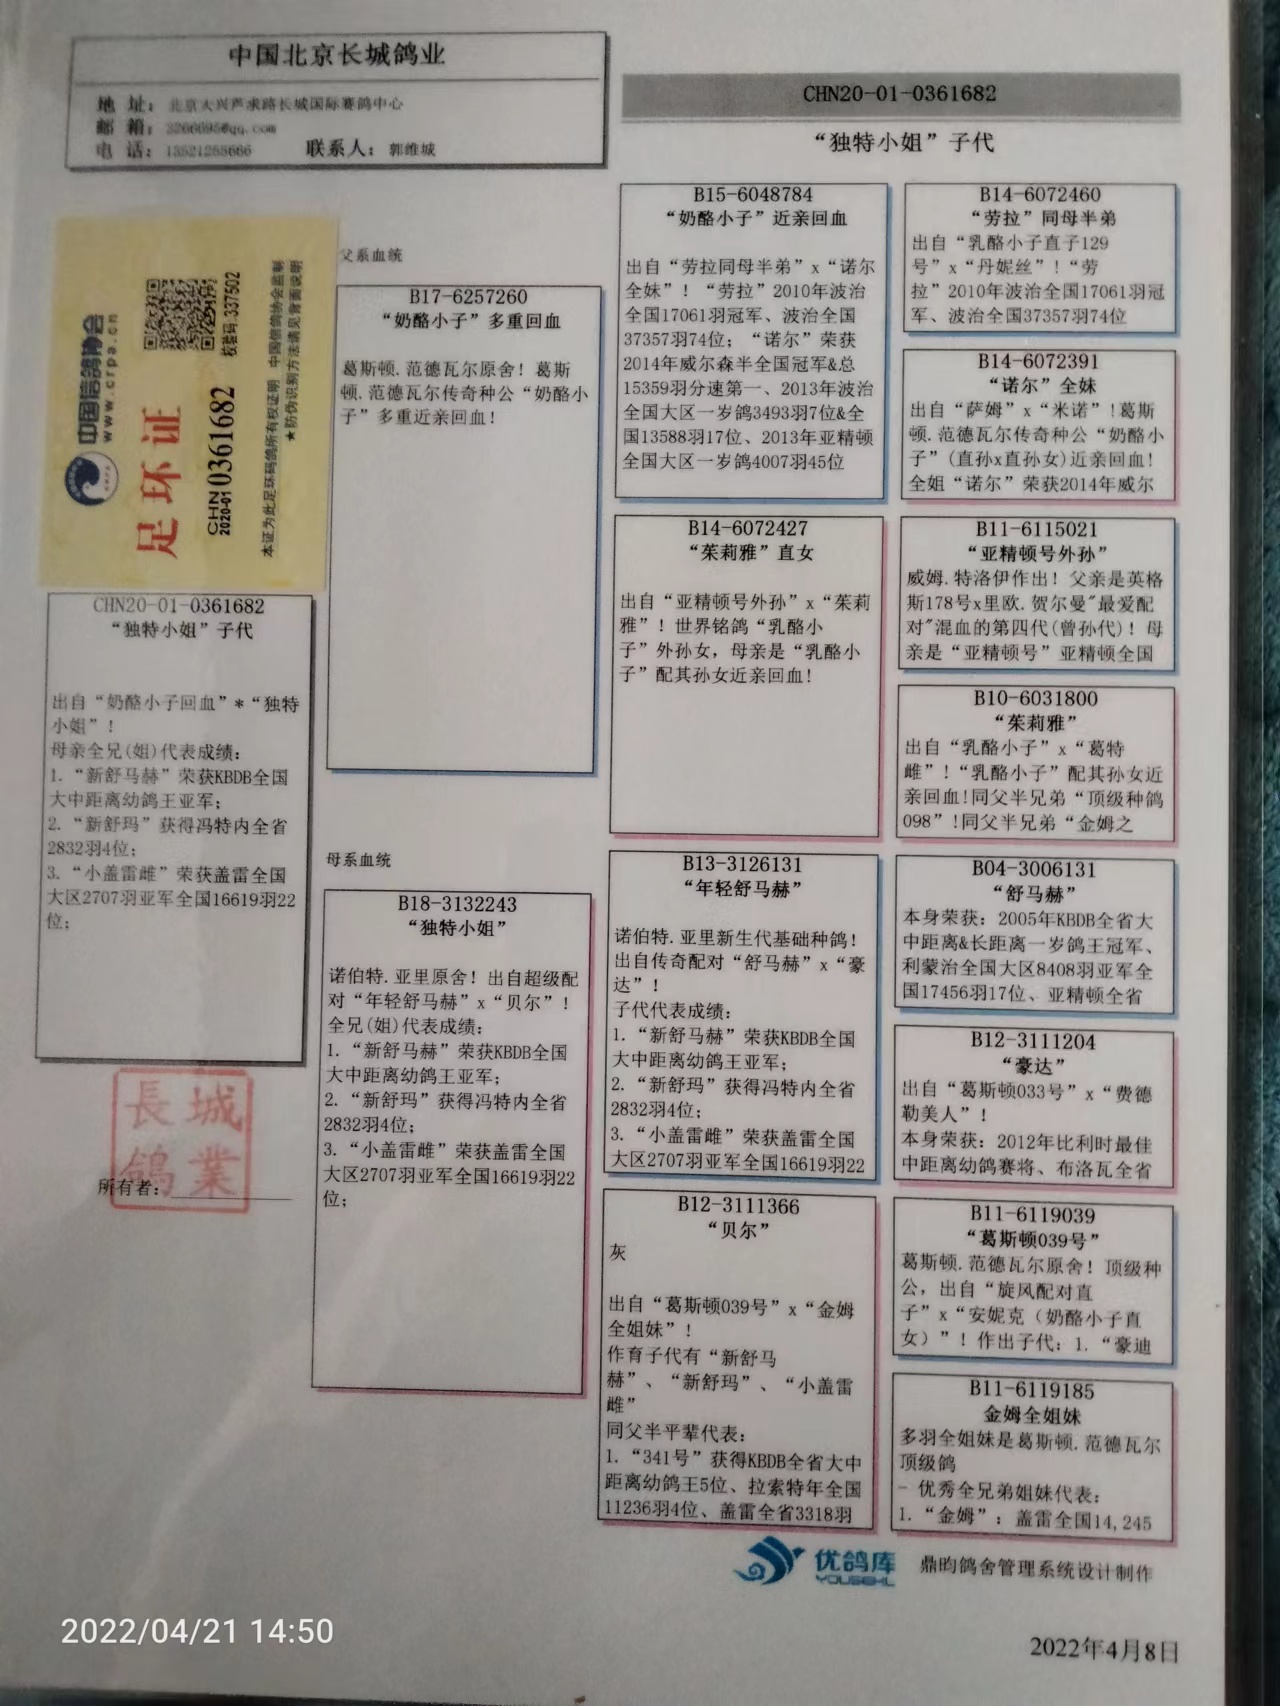 中国北京长城鸽业
地 址: 北京大兴芦求路长城国际赛鸽中心
邮 箱: 3266695@qq.com
电 话: 联系人: 郭维城
CHN20-01-0361682
“独特小姐”子代
中国信鸽协会
www.crpa.cn
足环证
CHN 2020-01 0361682
校验码 337502
本证为此足环码鸽所有权证明 中国信鸽协会监制
★防伪识别方法请见背面说明
CHN20-01-0361682
“独特小姐”子代
出自“奶酪小子回血”*“独特
小姐”!
母亲全兄(姐)代表成绩:
1. “新舒马赫”荣获KBDB全国
大中距离幼鸽王亚军;
2. “新舒玛”获得冯特内全省
2832羽4位;
3. “小盖雷雌”荣获盖雷全国
大区2707羽亚军全国16619羽22
位;
長城
鴿業
所有者:
父系血统
B17-6257260
“奶酪小子”多重回血
葛斯顿.范德瓦尔原舍! 葛斯
顿.范德瓦尔传奇种公“奶酪小
子”多重近亲回血!
母系血统
B18-3132243
“独特小姐”
诺伯特.亚里原舍! 出自超级配
对“年轻舒马赫”x“贝尔”!
全兄(姐)代表成绩:
1. “新舒马赫”荣获KBDB全国
大中距离幼鸽王亚军;
2. “新舒玛”获得冯特内全省
2832羽4位;
3. “小盖雷雌”荣获盖雷全国
大区2707羽亚军全国16619羽22
位;
B15-6048784
“奶酪小子”近亲回血
出自“劳拉同母半弟”x“诺尔
全妹”! “劳拉”2010年波治
全国17061羽冠军、波治全国
37357羽74位; “诺尔”荣获
2014年威尔森半全国冠军&总
15359羽分速第一、2013年波治
全国大区一岁鸽3493羽7位&全
国13588羽17位、2013年亚精顿
全国大区一岁鸽4007羽45位
B14-6072427
“茱莉雅”直女
出自“亚精顿号外孙”x“茱莉
雅”! 世界铭鸽“乳酪小
子”外孙女, 母亲是“乳酪小
子”配其孙女近亲回血!
B13-3126131
“年轻舒马赫”
诺伯特.亚里新生代基础种鸽!
出自传奇配对“舒马赫”x“豪
达”!
子代代表成绩:
1. “新舒马赫”荣获KBDB全国
大中距离幼鸽王亚军;
2. “新舒玛”获得冯特内全省
2832羽4位;
3. “小盖雷雌”荣获盖雷全国
大区2707羽亚军全国16619羽22
B12-3111366
“贝尔”
灰
出自“葛斯顿039号”x“金姆
全姐妹”!
作育子代有“新舒马
赫”、“新舒玛”、“小盖雷
雌”
同父半平辈代表:
1. “341号”获得KBDB全省大中
距离幼鸽王5位、拉索特年全国
11236羽4位、盖雷全省3318羽
B14-6072460
“劳拉”同母半弟
出自“乳酪小子直子129
号”x“丹妮丝”! “劳
拉”2010年波治全国17061羽冠
军、波治全国37357羽74位
B14-6072391
“诺尔”全妹
出自“萨姆”x“米诺”!葛斯
顿.范德瓦尔传奇种公“奶酪小
子”(直孙x直孙女)近亲回血!
全姐“诺尔”荣获2014年威尔
B11-6115021
“亚精顿号外孙”
威姆.特洛伊作出! 父亲是英格
斯178号x里欧.贺尔曼"最爱配
对"混血的第四代(曾孙代)! 母
亲是“亚精顿号”亚精顿全国
B10-6031800
“茱莉雅”
出自“乳酪小子”x“葛特
雌”!“乳酪小子”配其孙女近
亲回血!同父半兄弟“顶级种鸽
098”!同父半兄弟“金姆之
B04-3006131
“舒马赫”
本身荣获: 2005年KBDB全省大
中距离&长距离一岁鸽王冠军、
利蒙治全国大区8408羽亚军全
国17456羽17位、亚精顿全省
B12-3111204
“豪达”
出自“葛斯顿033号”x“费德
勒美人”!
本身荣获: 2012年比利时最佳
中距离幼鸽赛将、布洛瓦全省
B11-6119039
“葛斯顿039号”
葛斯顿.范德瓦尔原舍! 顶级种
公, 出自“旋风配对直
子”x“安妮克(奶酪小子直
女)”! 作出子代: 1. “豪迪
B11-6119185
金姆全姐妹
多羽全姐妹是葛斯顿.范德瓦尔
顶级鸽
- 优秀全兄弟姐妹代表:
1. “金姆”: 盖雷全国14,245
优鸽库 鼎昀鸽舍管理系统设计制作
2022年4月8日
2022/04/21 14:50